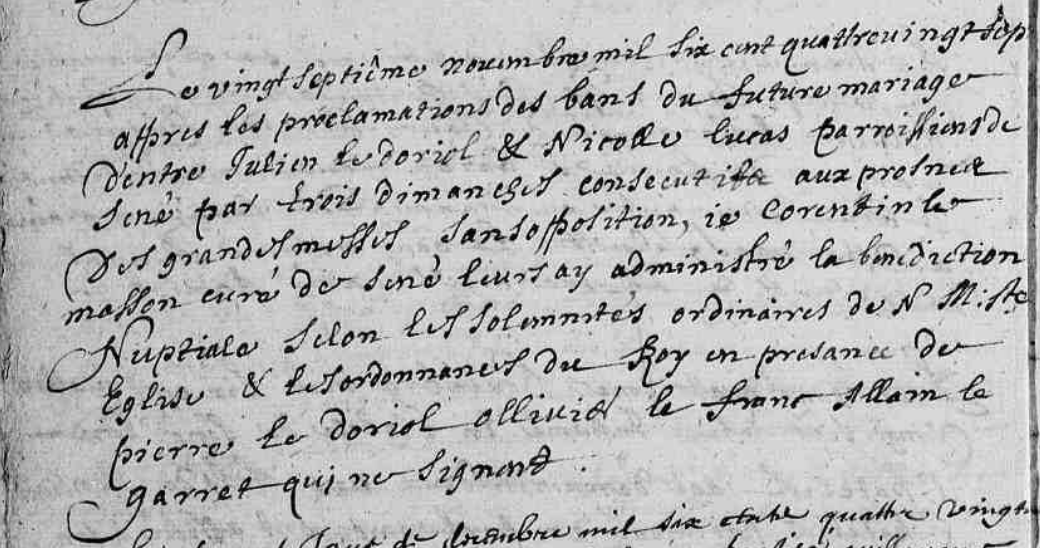 Le vingt septiême novembre mil six cent quattrevingt sep
appres les proclamations des bans du future mariage
d'entre Julien le doriol & Nicolle lucas parroissiens de
sené par trois dimanches consecutifs aux prosnes
des grandes messes sans oppolition, ie Corentin le
masson curé de sené leurs ay administré la benediction
Nuptiale selon les solemnités ordinaires de N M. Ste
Eglise & les ordonnances du Roy en presance de
pierre le doriol ollivier le franc Allain le
garret qui ne signant.
Jour de decembre mil six cents quattre vingt